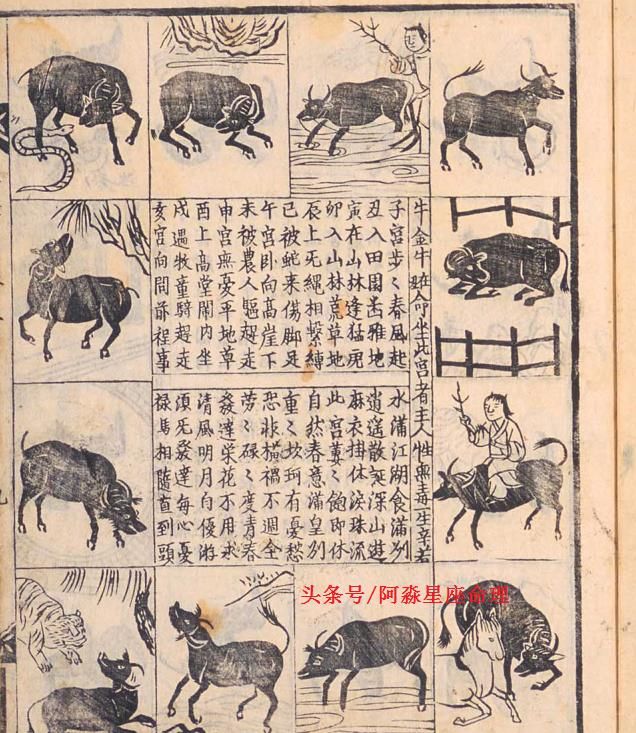 牛金牛躔命坐此宮者主人性無毒一生辛若
子宮步〻春風起
丑入田園啚雅地
寅在山林逢猛虎
卯入山林荒草地
辰上旡繩相繫縛
巳被蛇来傷脚足
午宮卧向高崖下
未被農人驅趕走
申宮無憂平地草
酉上高堂闌内坐
戌遇牧童騎趕走
亥宮向間前程事
水滿江湖食滿
逍遥散誕深山遊
麻衣掛体淚珠流
此宮萋〻飽即休
自然春意滿皇
重〻坎坷有憂愁
恐非横禍不週全
勞〻碌〻度青春
發達荣花不用求
清風明月自優游
須旡發達每心憂
禄馬相隨直到頭
头条号/阿淼星座命理